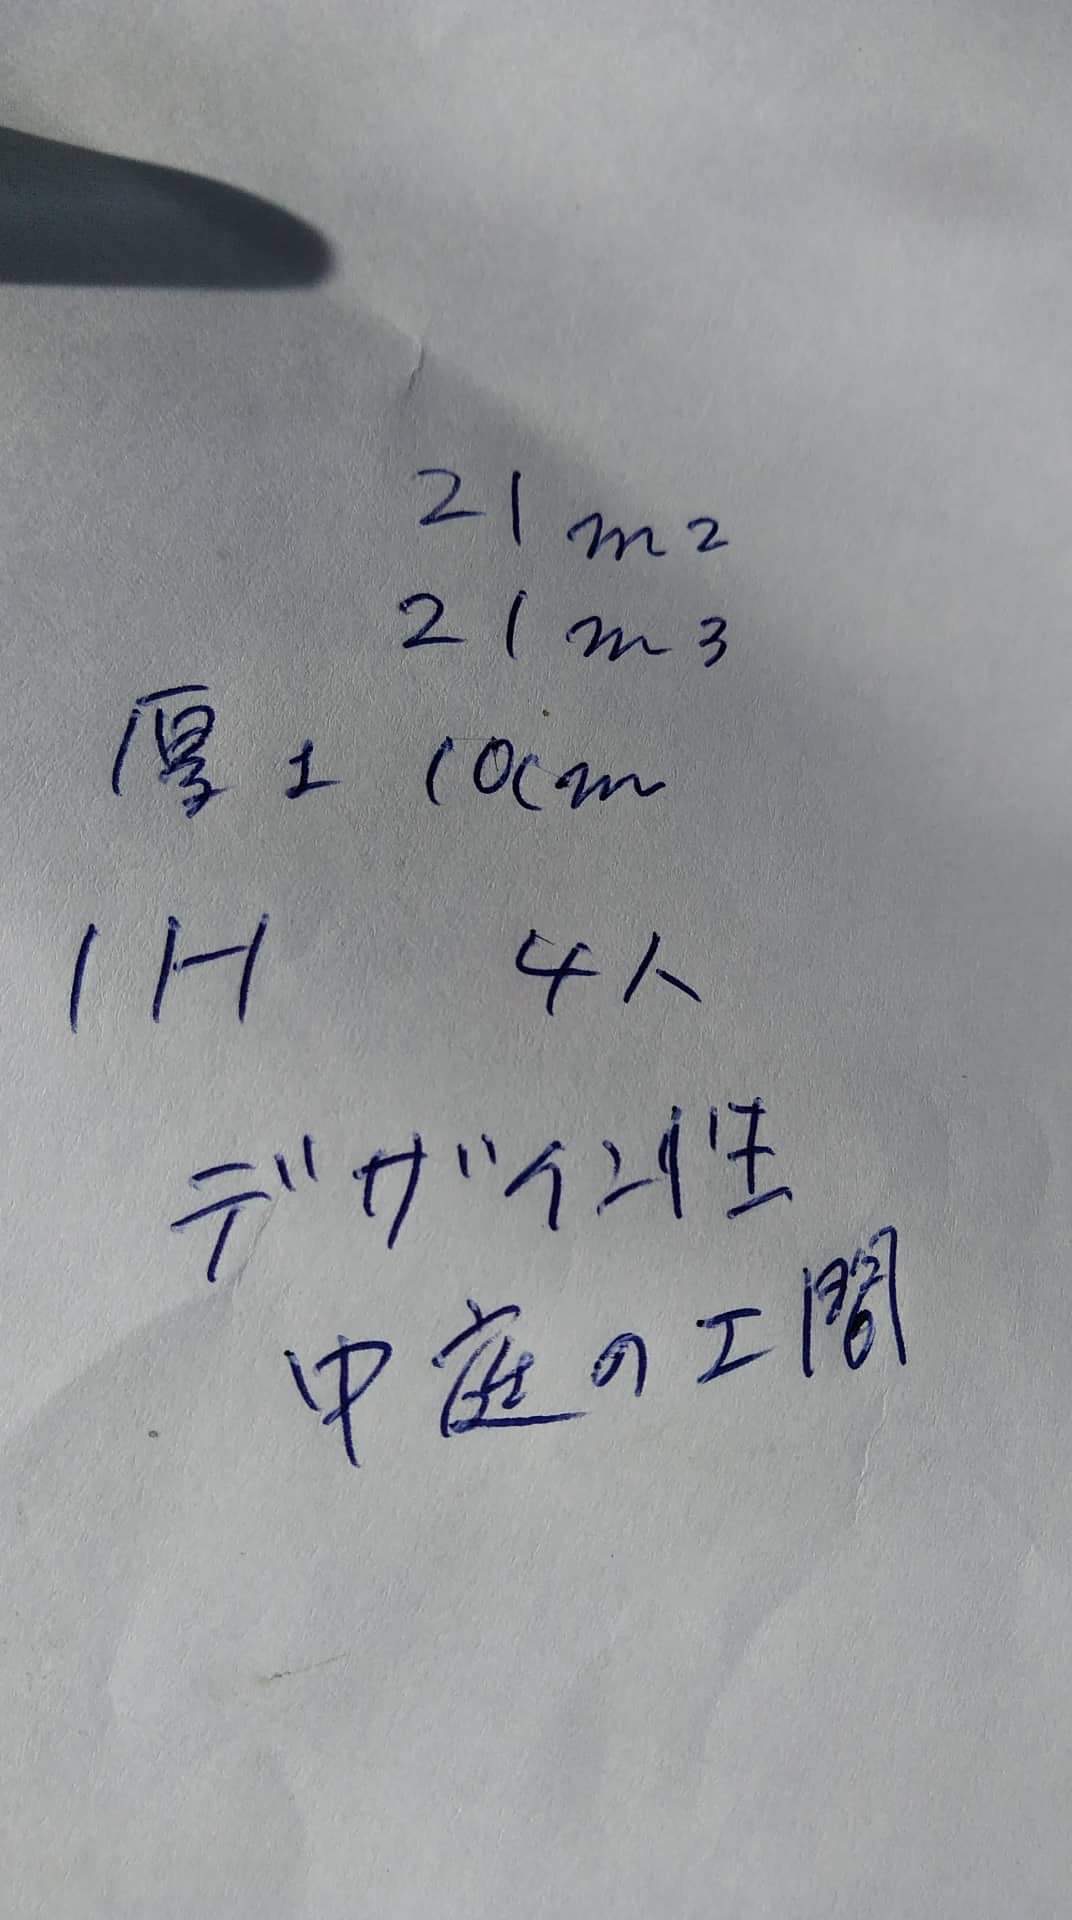 21m2
21m3
厚±10cm
1H 4人
デザイン性
中庭の工間